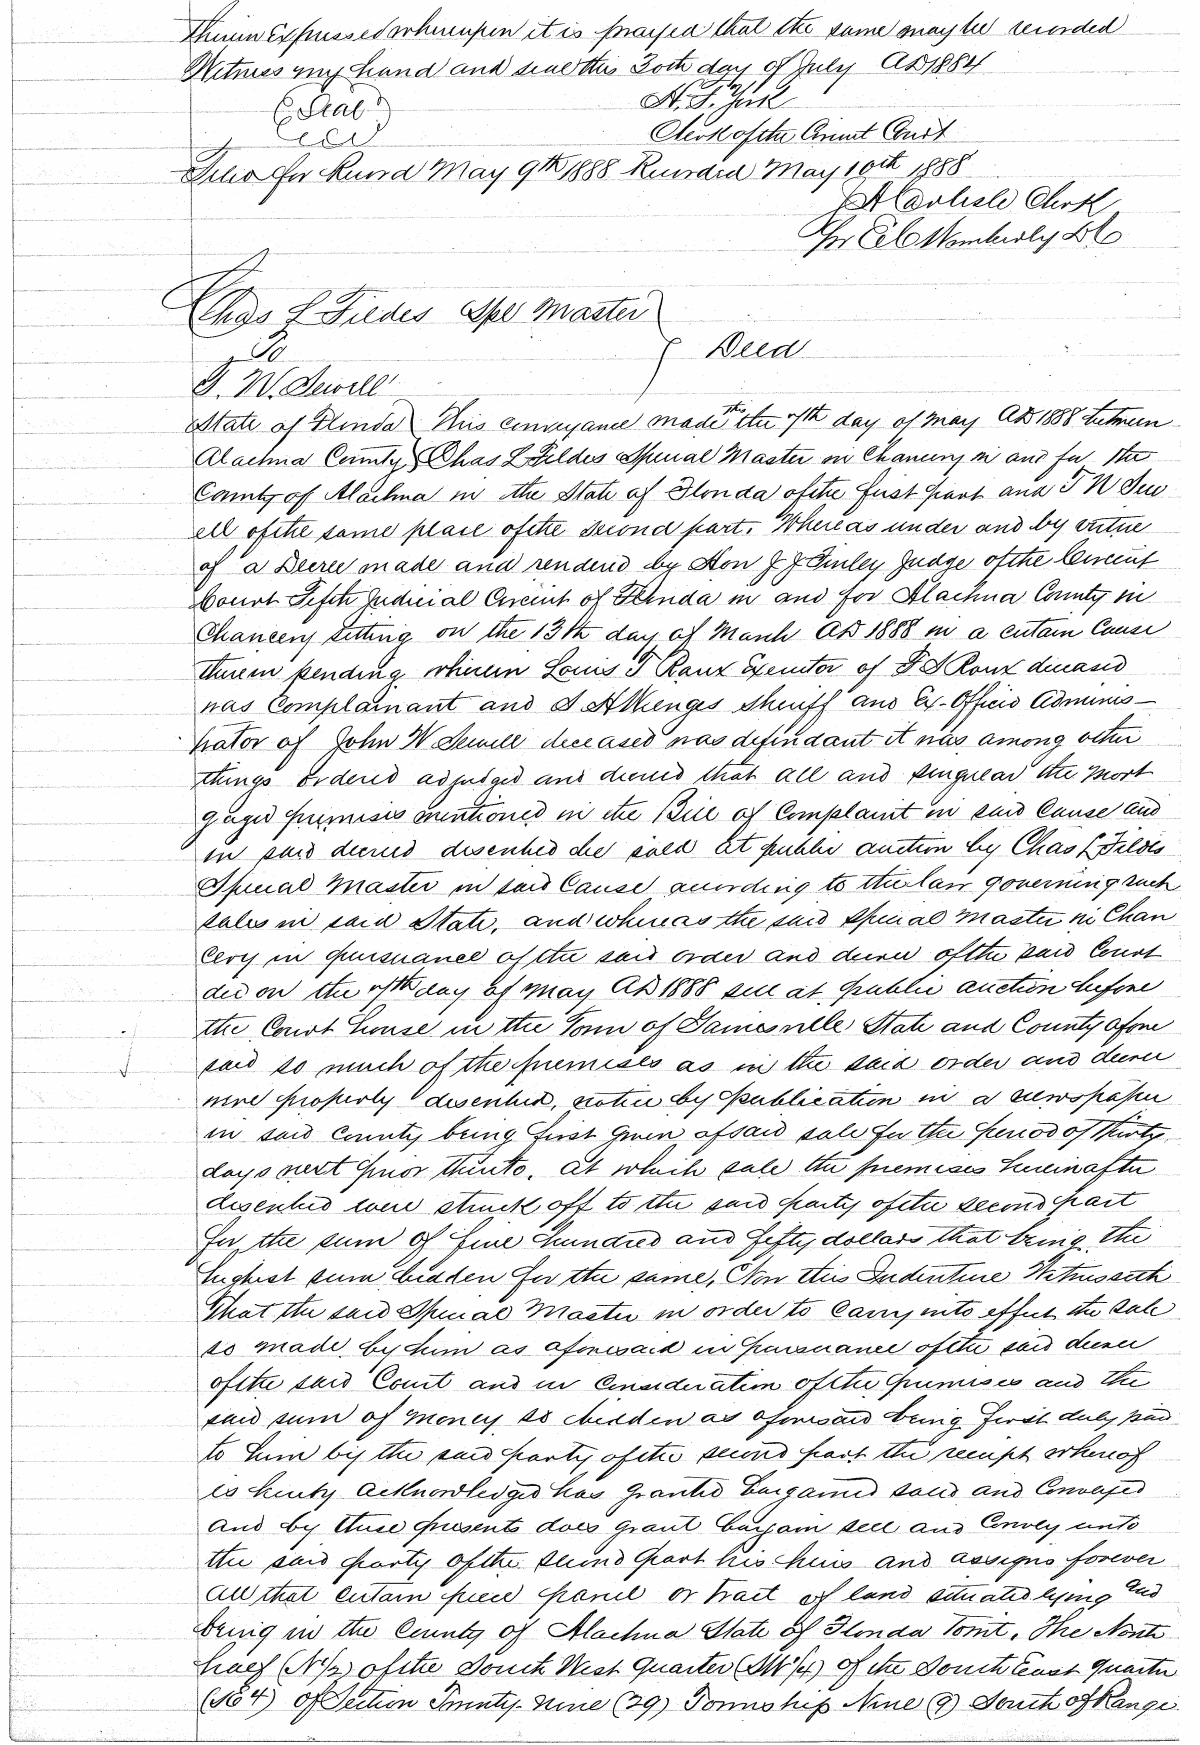 Therein Expressed whereupon it is prayed that the same may be recorded
Witness my hand and seal this 30th day of July AD 1884
(Seal) H. F. York
Clerk of the Circuit Court
Filed for Record May 9th 1888 Recorded May 10th 1888
Carlisle Clerk
Per Wimberly DC
Chas L Fildes Spe Master
To } Deed
T. W. Sewell
State of Florida This conveyance made this the 7th day of May AD 1888 between
Alachua County Chas L Fildes Special Master in Chancery in and for the
County of Alachua in the State of Florida of the first part and T W Sew
ell of the same place of the second part. Whereas under and by virtue
of a Decree made and rendered by Hon J J Finley Judge of the Circuit
Court Fifth Judicial Circuit of Florida in and for Alachua County in
Chancery sitting on the 13th day of March AD 1888 in a certain Cause
therein pending wherein Louis T Roux Executor of F S Roux deceased
was Complainant and S H Wienges Sheriff and Ex-Officio Adminis-
trator of John W Sewell deceased was defendant it was among other
things ordered adjudged and decreed that all and singular the Mort
gaged premises mentioned in the Bill of Complaint in said Cause and
in said decreed described be sold at public auction by Chas L Fildes
Special Master in said Cause according to the law governing such
sales in said State, and whereas the said Special Master in Chan
cery in pursuance of the said order and decree of the said Court
did on the 7th day of May AD 1888 sell at public auction before
the Court house in the Town of Gainesville State and County afore
said so much of the premises as in the said order and decree
were properly described, notice by publication in a newspaper
in said County being first given of said sale for the period of thirty
days next prior thereto. at which sale the premises hereinafter
described were struck off to the said party of the second part
for the sum of five hundred and fifty dollars that being the
highest sum bidden for the same, Now this Indenture Witnesseth
That the said Special Master in order to carry into effect the sale
so made by him as aforesaid in pursuance of the said decree
of the said Court and in Consideration of the premises and the
said sum of money so bidden as aforesaid being first duly paid
to him by the said party of the second part the receipt whereof
is hereby acknowledged has granted bargained sold and Conveyed
and by these presents does grant bargain sell and Convey unto
the said party of the second part his heirs and assigns forever
all that certain piece parcel or tract of land situated lying and
being in the County of Alachua State of Florida Towit. The North
half (N 1/2) of the South West Quarter (SW 1/4) of the South East quarter
(SE 4) of Section Twenty-nine (29) Township Nine (9) South of Range